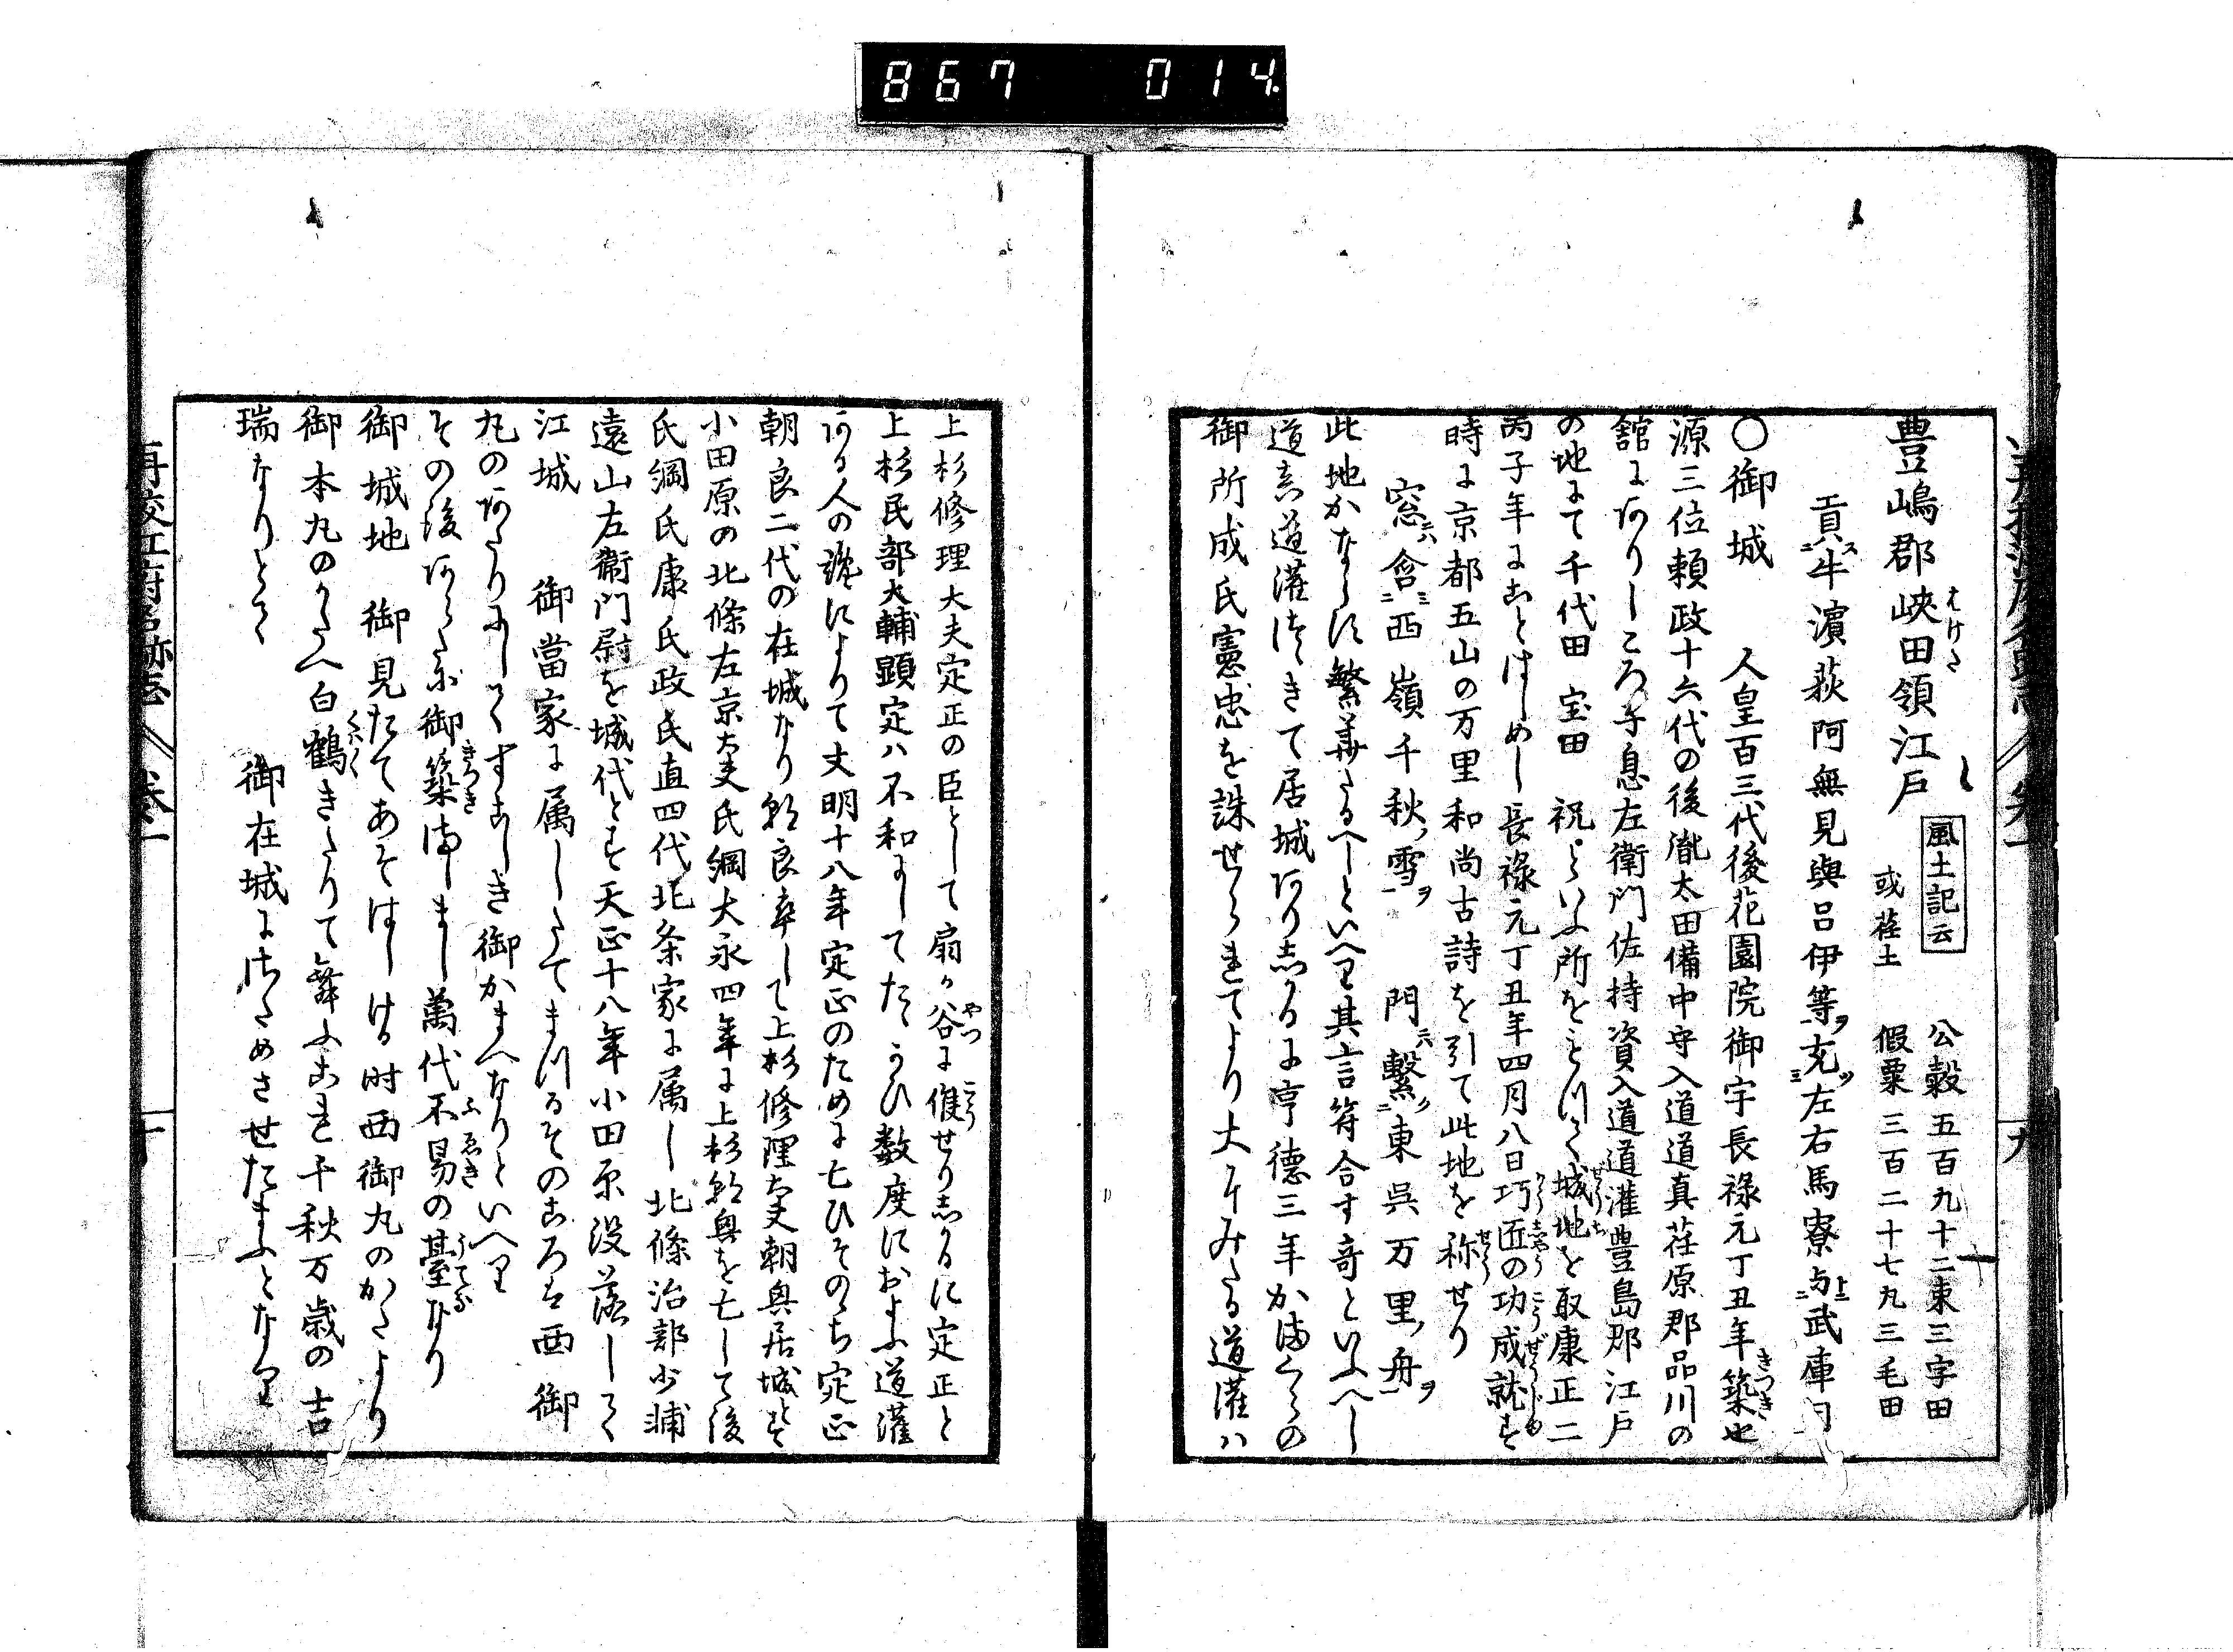 867 014
豊嶋郡峽田領江戸
はけた
風土記云
或荏土
公穀五百九十二束三字田
假粟三百二十七丸三毛田
貢ス牛濵荻阿無見與呂伊等ヲ充ツ左右馬寮与武庫司
〇御城 人皇百三代後花園院御宇長禄元丁丑年築也
きつき
源三位頼政十六代の後胤太田備中守入道道真荏原郡品川の
舘にありしころ子息左衛門佐持資入道道灌豊島郡江戸
の地にて千代田 宝田 祝といふ所をみつく城地を取康正二
丙子年にことはしめし長禄元丁丑年四月八日巧匠の功成就す
時に京都五山の万里和尚古詩を引て此地を称せり
窓ニハ含ム西嶺千秋ノ雪ヲ 門ニハ繋ク東呉万里ノ舟ヲ
此地かならす繁華たるへしといへり其言符合す奇といふへし
道真道灌つゝきて居城ありしかるに亨徳三年かまくらの
御所成氏憲忠を誅せられてより大にみたる道灌ハ
上杉修理大夫定正の臣として扇ヶ谷に候せりしかるに定正と
やつ
こう
上杉民部大輔顕定ハ不和にしてたゝかひ数度におよふ道灌
ある人の讒によりて文明十八年定正のために亡ひそのゝち定正
朝良二代の在城なり朝良卒して上杉修理大夫朝興居城とす
小田原の北條左京大夫氏綱大永四年に上杉朝興を亡して後
氏綱氏康氏政氏直四代北条家に属し北條治部少輔
遠山左衛門尉を城代とす天正十八年小田原没落して
江城 御當家に属したてまつるそのころは西 御
丸のあたりにしてすこしき御かまへなりといへり
その後あらたに御築ましまし萬代不易の臺なり
きつき
ふゑき
うてな
御城地 御見たてあそはしける時西御丸のかたより
御本丸のかたへ白鶴きたりて舞ふこれ千秋万歳の吉
瑞なりとて 御在城にさためさせたまふとなり
再校江府名跡志 巻一